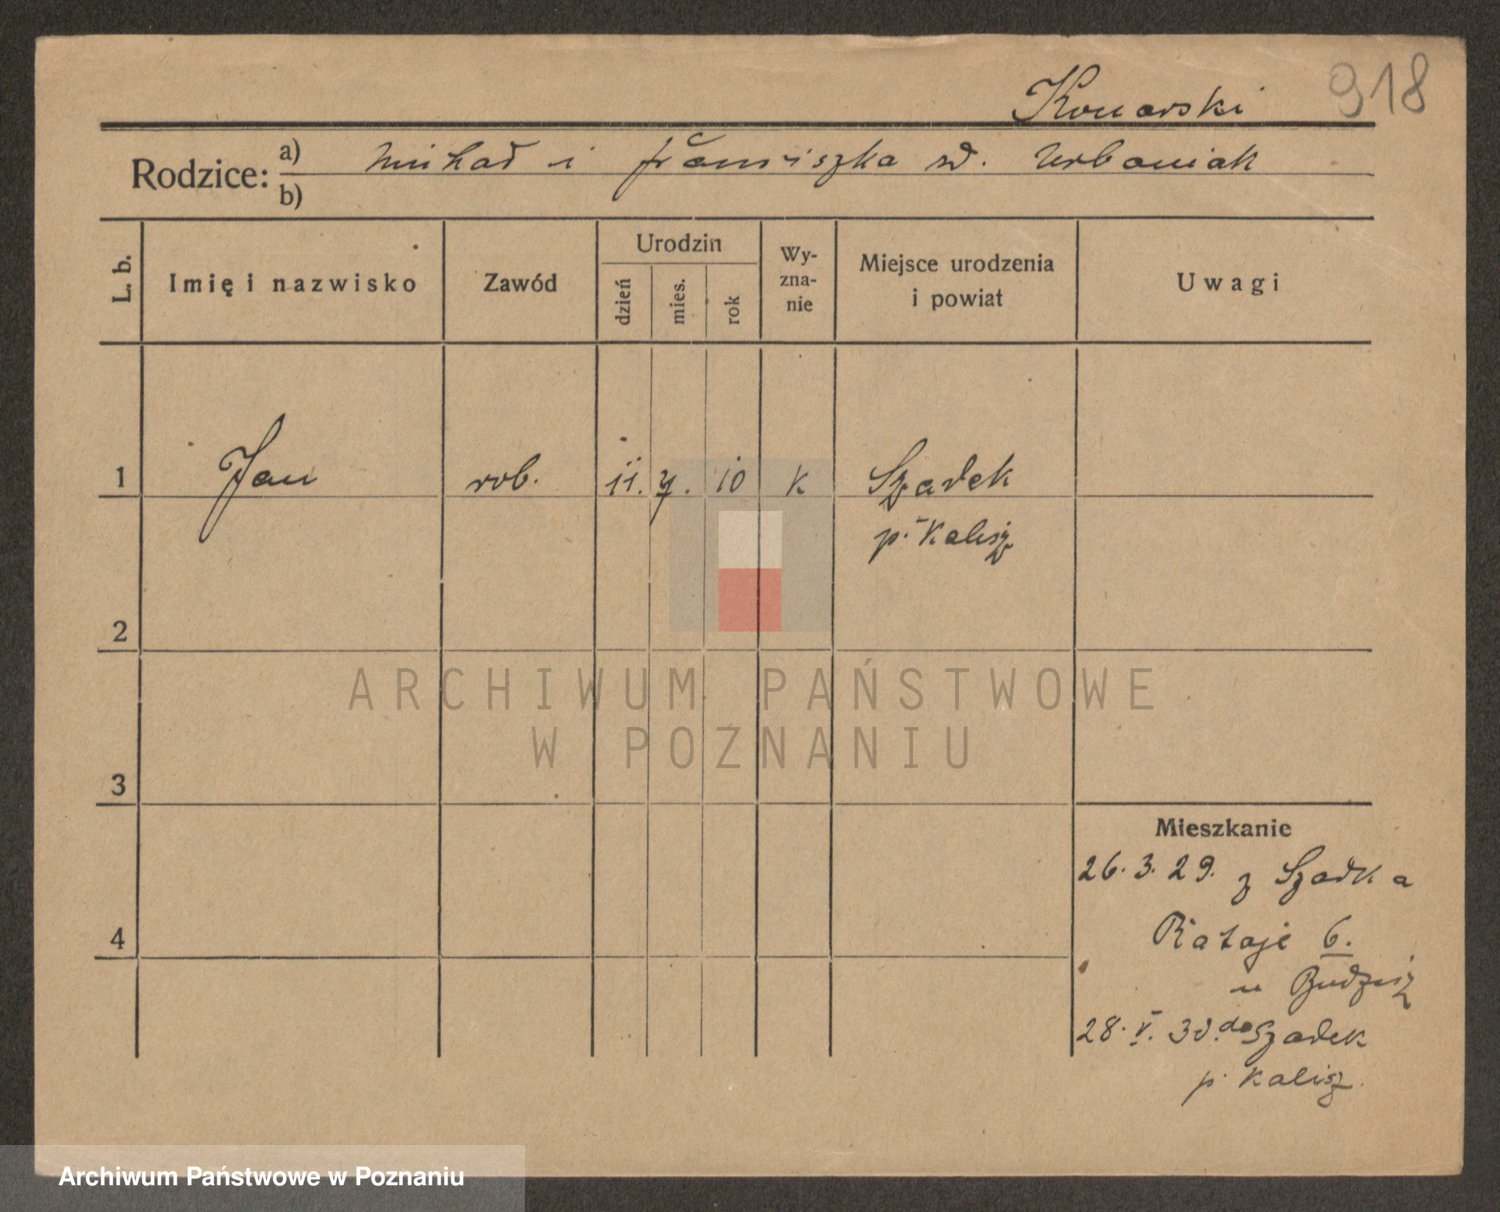 Konarski 918
Rodzice: a) Michał i Franciszka zd. Urbaniak
b)
L. b.
Imię i nazwisko
Zawód
Urodzin
dzień
mies.
rok
Wy-
zna-
nie
Miejsce urodzenia
i powiat
Uwagi
1 Jan rob. 11. 7. 10 k Szadek
p. Kalisz
2
ARCHIWUM PAŃSTWOWE
W POZNANIU
3
Mieszkanie
26. 3. 29. z Szadka
4
Rataje 6.
u Budzisz
28. V. 30. do Szadek
p. Kalisz.
Archiwum Państwowe w Poznaniu